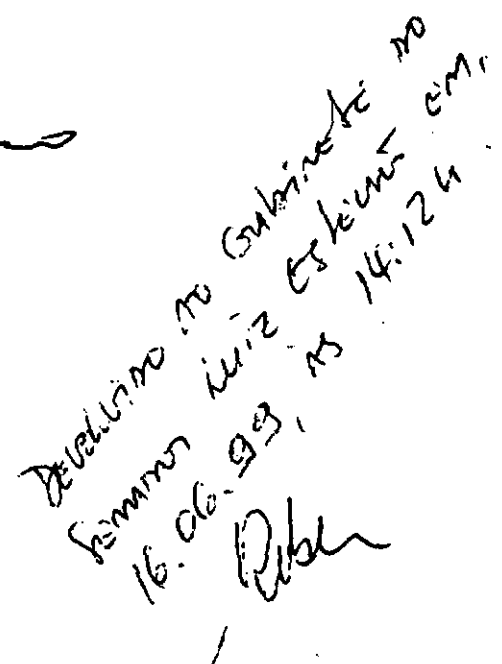 Devolvido ao Gabinete do
Senador Luiz Estevão em,
16.06.99, às 14:12 h